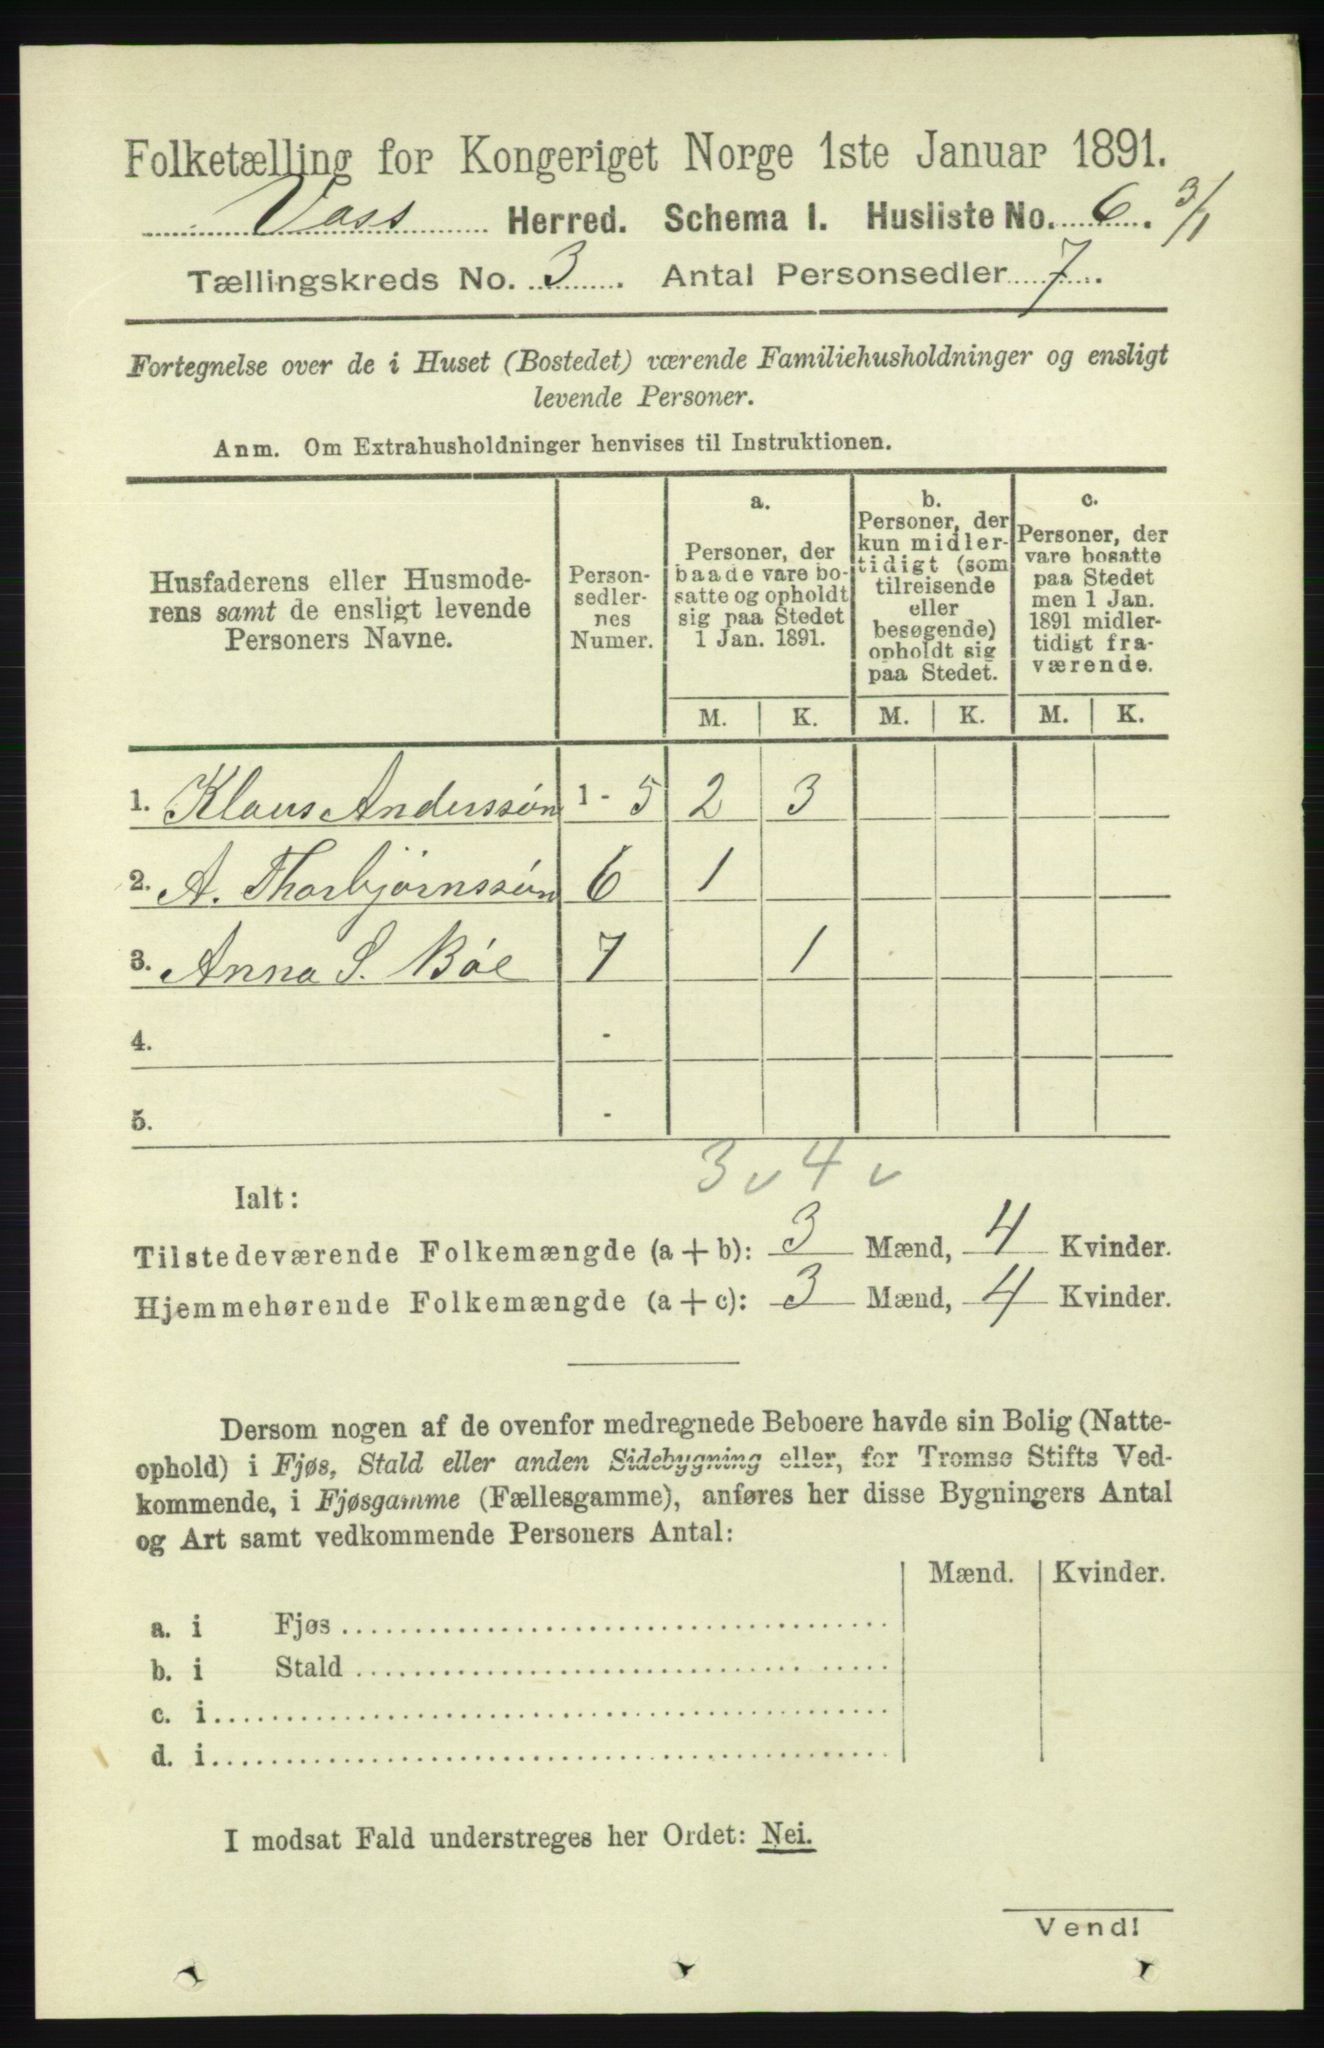 Folketælling for Kongeriget Norge 1ste Januar 1891.
Voss Herred. Schema I. Husliste No. 6. 3/1
Tællingskreds No. 3. Antal Personsedler 7.
Fortegnelse over de i Huset (Bostedet) værende Familiehusholdninger og ensligt
levende Personer.
Anm. Om Extrahusholdninger henvises til Instruktionen.
Husfaderens eller Husmode-
rens samt de ensligt levende
Personers Navne.
Person-
sedler-
nes
Numer.
a.
Personer, der
baade vare bo-
satte og opholdt
sig paa Stedet
1 Jan. 1891.
b.
Personer, der
kun midler-
tidigt (som
tilreisende
eller
besøgende)
opholdt sig
paa Stedet.
c.
Personer, der
vare bosatte
paa Stedet
men 1 Jan.
1891 midler-
tidigt fra-
værende.
M. K. M. K. M. K.
1. Klaus Anderssøn 1 - 5 2 3
2. A. Thorbjørnssøn 6 1
3. Anna S. Bøe 7 1
4. -
5. -
3 v 4 v
Ialt:
Tilstedeværende Folkemængde (a + b): 3 Mænd, 4 Kvinder.
Hjemmehørende Folkemængde (a + c): 3 Mænd, 4 Kvinder.
Dersom nogen af de ovenfor medregnede Beboere havde sin Bolig (Natte-
ophold) i Fjøs, Stald eller anden Sidebygning eller, for Tromsø Stifts Ved-
kommende, i Fjøsgamme (Fællesgamme), anføres her disse Bygningers Antal
og Art samt vedkommende Personers Antal:
Mænd. Kvinder.
a. i Fjøs
b. i Stald
c. i
d. i
I modsat Fald understreges her Ordet: Nei.
Vend!